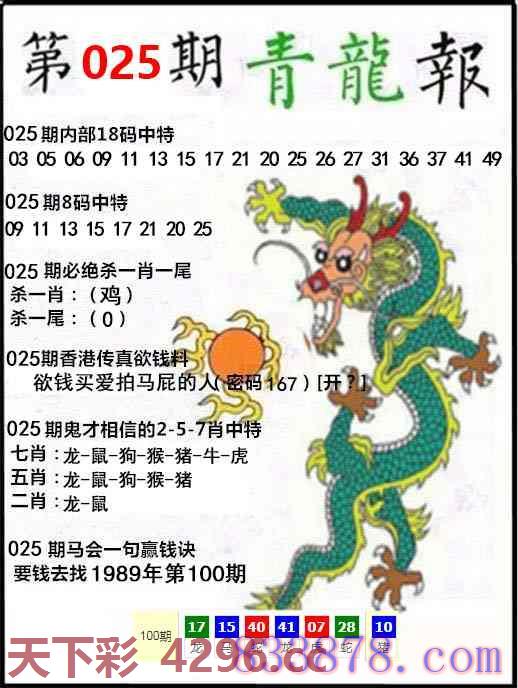 第025期青龍報
025期内部18码中特
03 05 06 09 11 13 15 17 21 20 25 26 27 31 36 37 41 49
025期8码中特
09 11 13 15 17 21 20 25
025 期必绝杀一肖一尾
杀一肖：（鸡）
杀一尾：（0）
025期香港传真欲钱料
欲钱买爱拍马屁的人（密码167）[开？]
025期鬼才相信的2-5-7肖中特
七肖：龙-鼠-狗-猴-猪-牛-虎
五肖：龙-鼠-狗-猴-猪
二肖：龙-鼠
025 期马会一句赢钱诀
要钱去找1989年第100期
100期 17 15 40 41 07 28 10
龙 蛇 龙 虎 蛇 猪
天下彩 4296.cc
838878.com